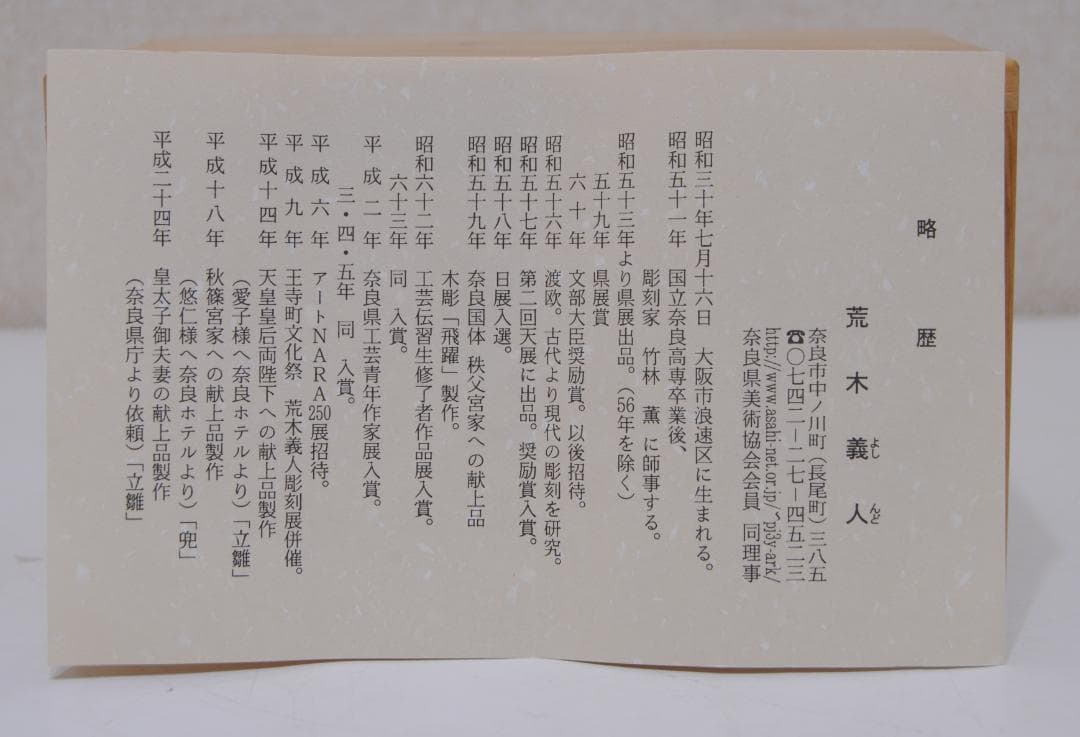 略歴
荒木義人
よし んど
奈良市中ノ川町(長尾町)三八五
☎〇七四二―二七―四五二三
http://www.asahi-net.or.jp/~pj3y-ark/
奈良県美術協会会員 同理事
昭和三十年七月十六日 大阪市浪速区に生まれる。
昭和五十一年 国立奈良高専卒業後、
彫刻家 竹林 薫 に師事する。
昭和五十三年より県展出品。(56年を除く)
五十九年 県展賞
六十年 文部大臣奨励賞。以後招待。
昭和五十六年 渡欧。古代より現代の彫刻を研究。
昭和五十七年 第二回天展に出品。奨励賞入賞。
昭和五十八年 日展入選。
昭和五十九年 奈良国体 秩父宮家への献上品
木彫「飛躍」製作。
昭和六十二年 工芸伝習生修了者作品展入賞。
六十三年 同 入賞。
平成二年 奈良県工芸青年作家展入賞。
三・四・五年 同 入賞。
平成六年 アートNARA250展招待。
平成九年 王寺町文化祭 荒木義人彫刻展併催。
平成十四年 天皇皇后両陛下への献上品製作
(愛子様へ奈良ホテルより)「立雛」
平成十八年 秋篠宮家への献上品製作
(悠仁様へ奈良ホテルより)「兜」
平成二十四年 皇太子御夫妻の献上品製作
(奈良県庁より依頼)「立雛」